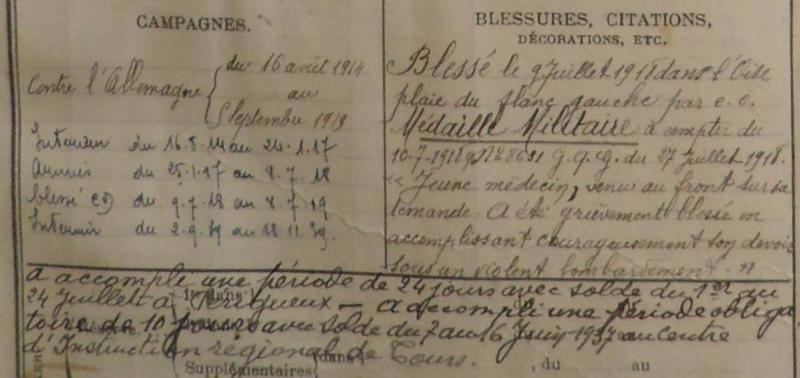 CAMPAGNES.
Contre l'Allemagne
du 16 août 1914
au
Septembre 1919
Intérieur du 16.8.14 au 24.1.17
Armées du 25.1.17 au 8.7.18
blessé du 9.7.18 au 8.7.19
Intérieur du 2.9.39 au 28.11.39.
BLESSURES, CITATIONS,
DÉCORATIONS, ETC.
Blessé le 9 Juillet 1918 dans l'Oise
plaie du flanc gauche par e. o.
Médaille Militaire à compter du
10-7-1918 du 27 Juillet 1918.
"Jeune médecin, venu au front sur sa
demande. A été grièvement blessé en
accomplissant courageusement son devoir
sous un violent bombardement."
a accompli une période de 24 jours avec solde du 1er au
24 Juillet à Périgueux — a accompli une période obliga
toire de 10 jours avec solde du 7 au 16 Juin 1937 au Centre
d'Instruction régional de Tours.
dans
Supplémentaires
, du au